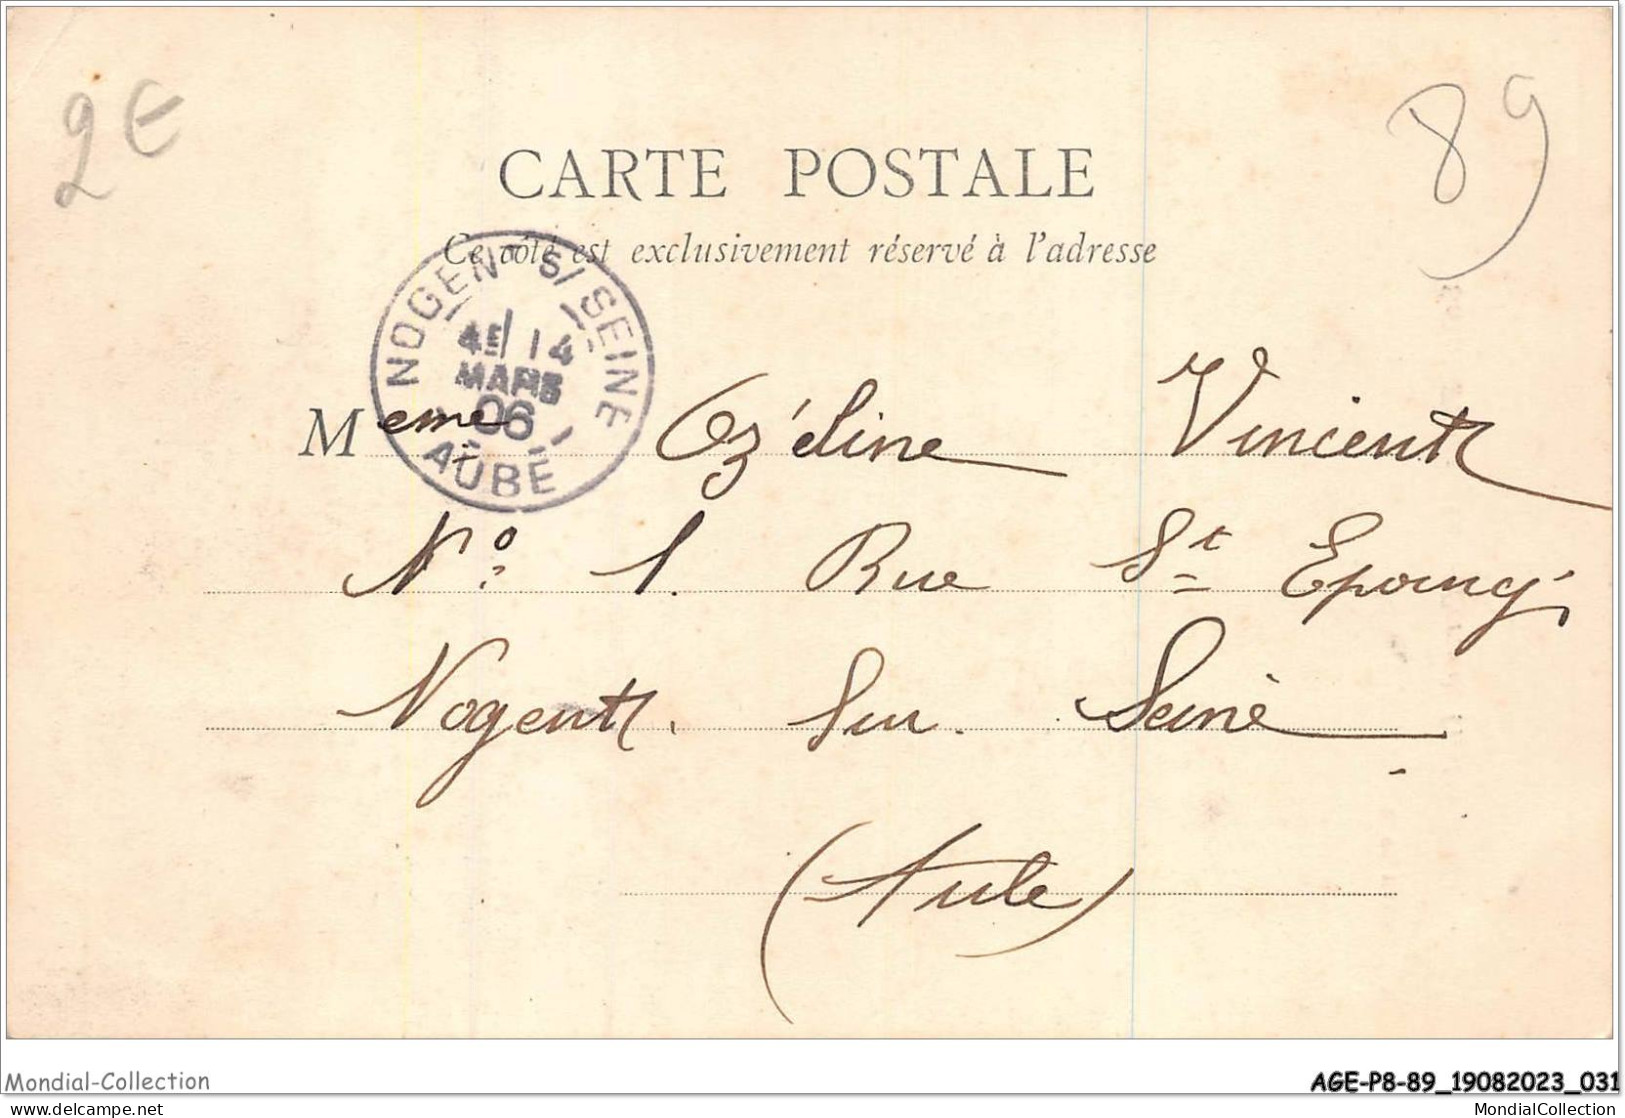 2€
89
CARTE POSTALE
Ce côté est exclusivement réservé à l'adresse
NOGENT S/SEINE
4E 14
MARS
06
AUBE
Meme Ozéline Vincent
No 1. Rue St Epoing
Nogent. Sur. Seine
(Aube)
Mondial-Collection
AGE-P8-89_19082023_031
delcampe.net
MondialCollection